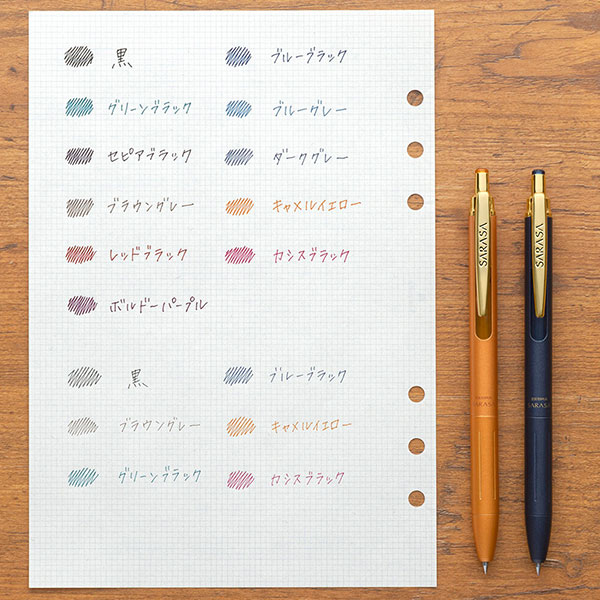 黒 ブルーブラック
グリーンブラック ブルーグレー
セピアブラック ダークグレー
ブラウングレー キャメルイエロー
レッドブラック カシスブラック
ボルドーパープル
黒 ブルーブラック
ブラウングレー キャメルイエロー
グリーンブラック カシスブラック
SARASA
SARASA
SARASA
SARASA